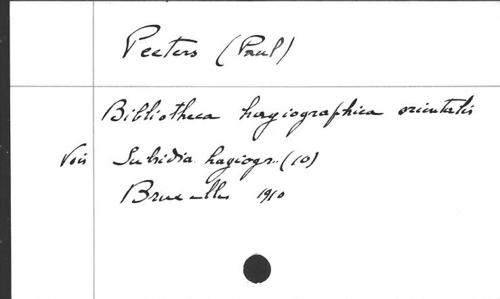 Peeters (Paul)
Bibliotheca hagiographica orientalis
Voir Subsidia hagiogr.. (10)
Bruxelles 1910